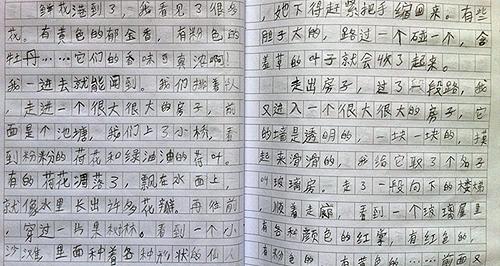 鲜花港到了，我看见了很多
花。有黄色的郁金香，有粉色的
牡丹……它们的香味可真浓啊！
我一进去就能闻到。我们排着队
，走进一个很大很大的房子，前
面是个池塘，我们上了小桥，看
到粉粉的荷花和绿油油的荷叶。
有的荷花凋落了，飘在水面上，
就像水里长出许多花瓣。再往前
，穿过一片果树林。看到一个小
沙滩，里面种着各种形状的仙人
，她下得赶紧把手缩回来。有些
胆子大的，路过一个碰一个，含
羞草的叶子就会收了起来。
走出房子，过了一段路，我
又进入一个很大很大的房子，它
的墙是透明的，一块一块的，摸
起来滑滑的，我给它取了个名字
叫玻璃房。走了一段向下的楼梯
，顺着走廊，看到一个玻璃屋里
有各种颜色的红掌，有红色的，
有粉色的，有黄色的……前面又